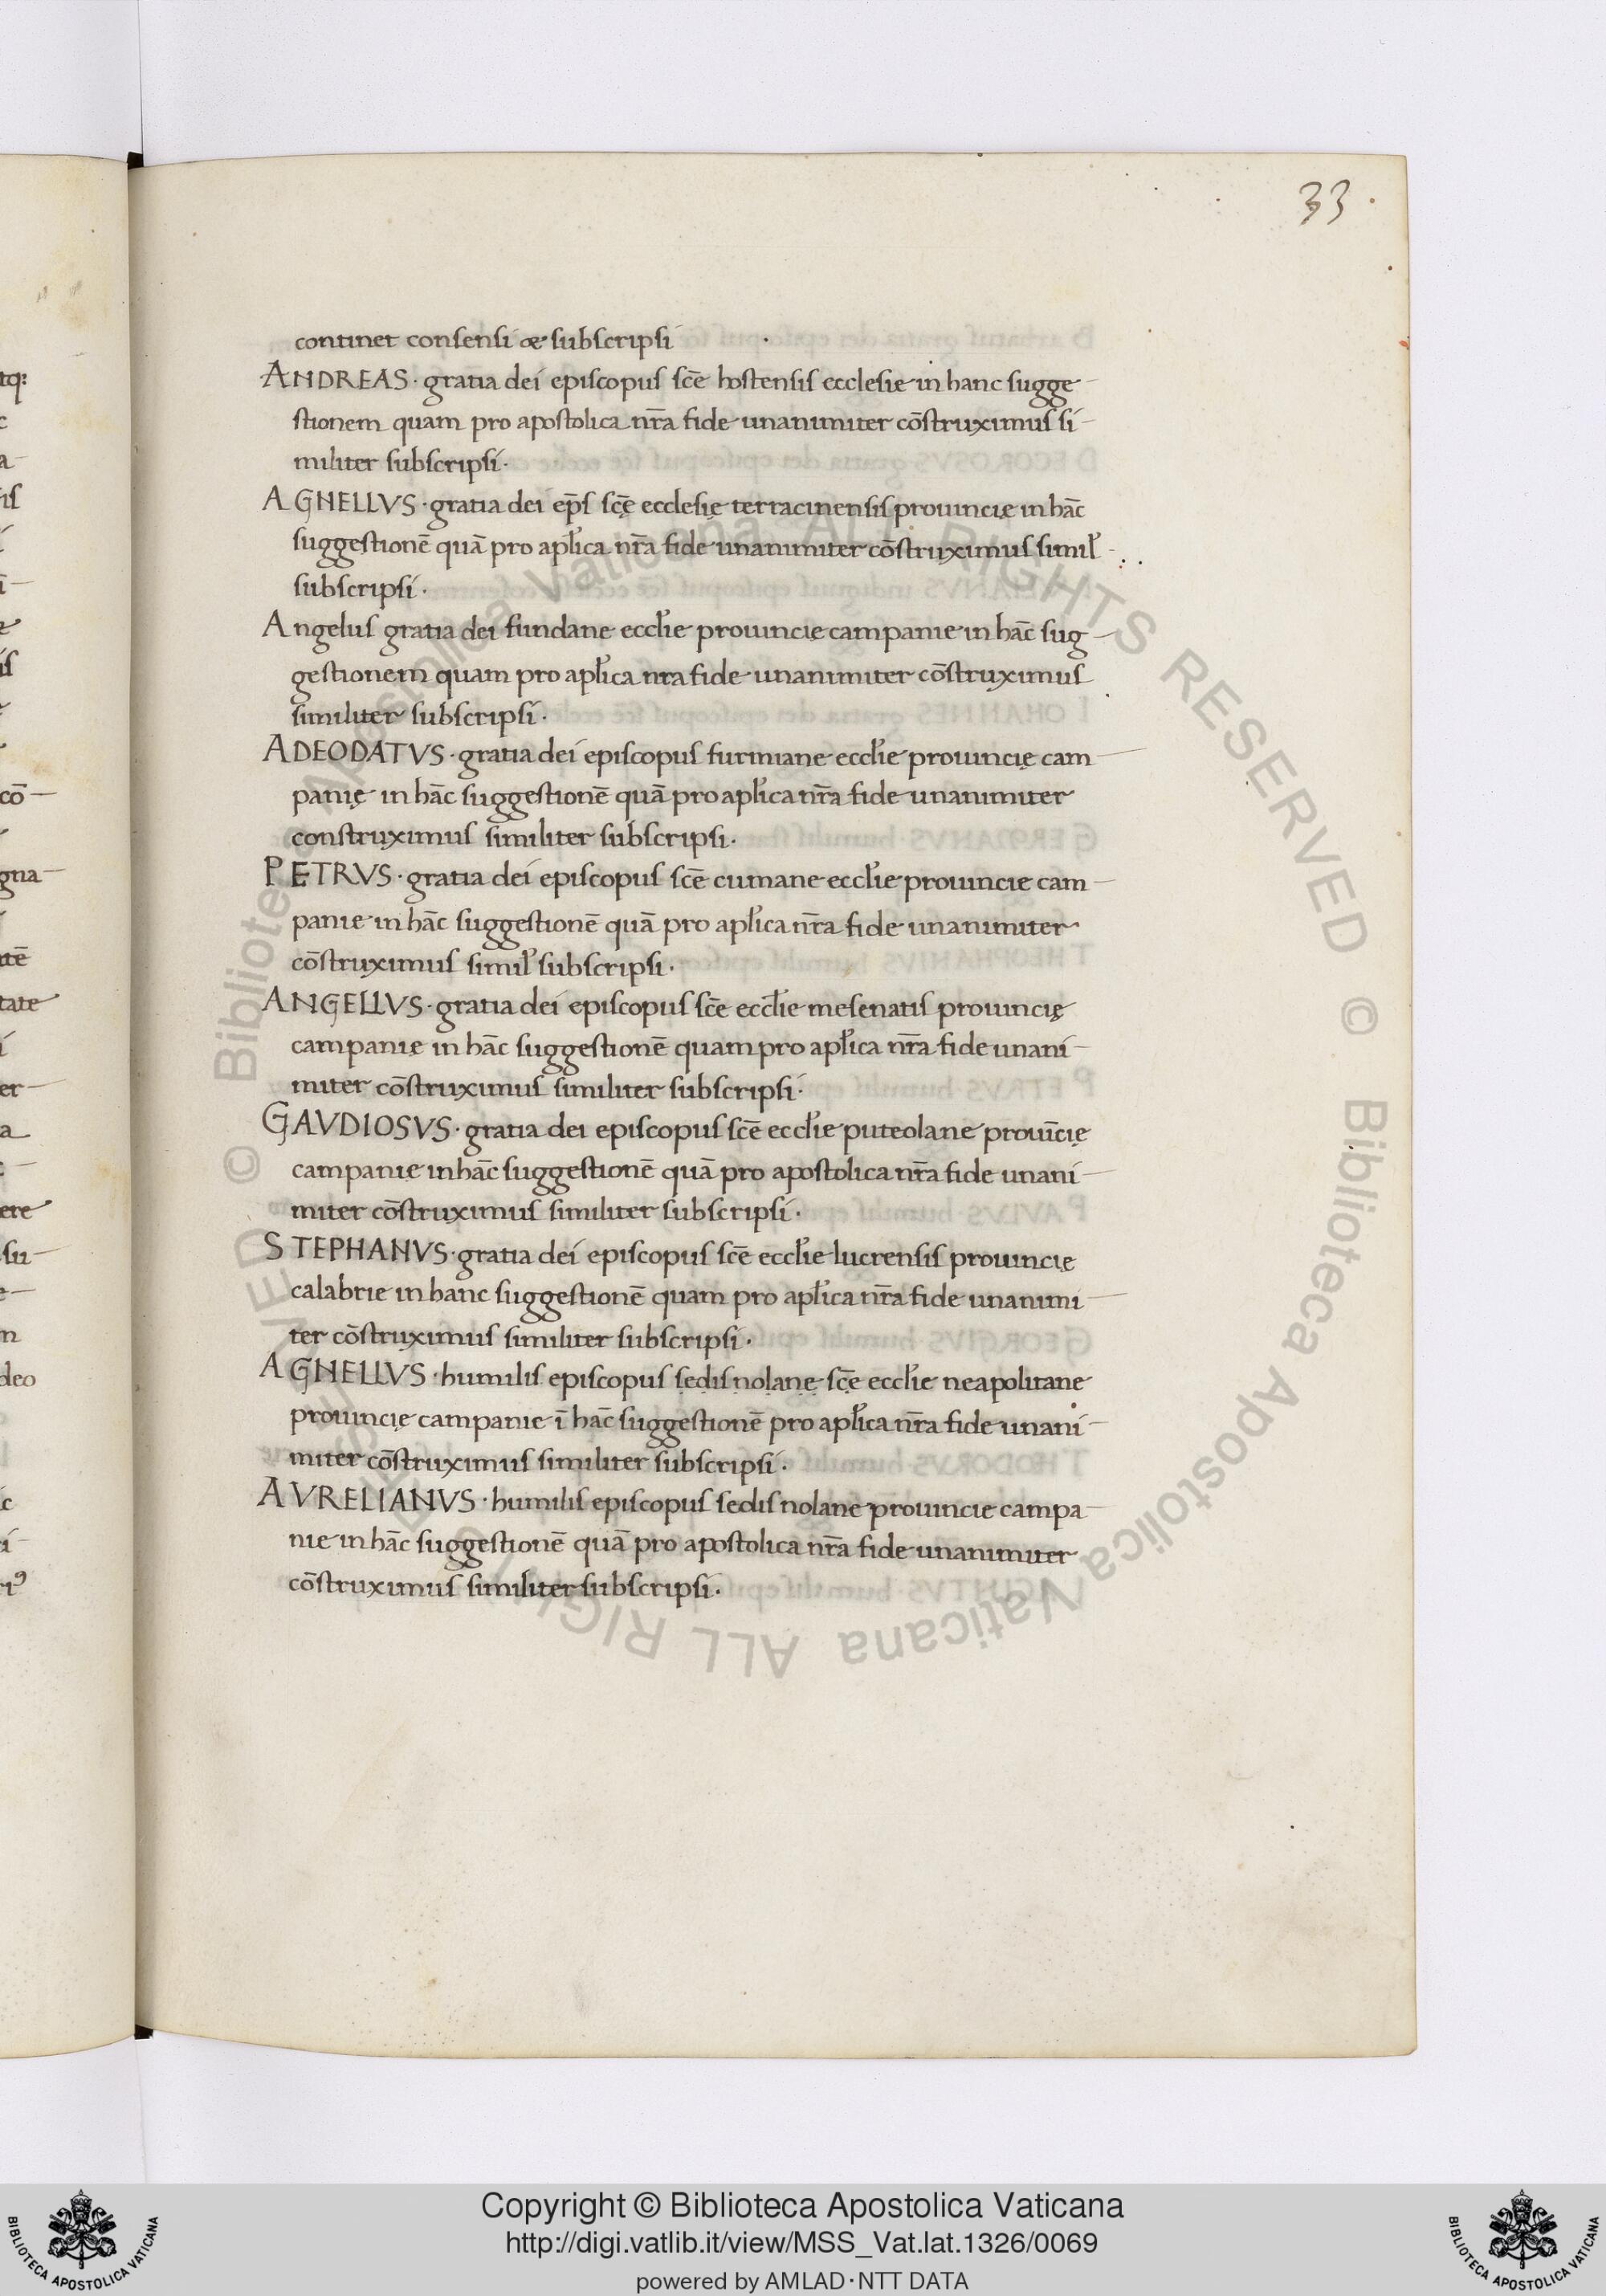 33
continet consensi & subscripsi
ANDREAS · gratia dei episcopus scē hostensis ecclesie in hanc sugge
stionem quam pro apostolica nr̄a fide unanimiter cōstruximus si
militer subscripsi·
AGNELLVS · gratia dei ep̄s scę̄ ecclesię terracinensis prouincię in hāc
suggestionē quā pro apl̓ica nr̄a fide unanimiter cōstruximus simil̓
subscripsi ·
Angelus gratia dei fundane eccl̓ie prouincie campanie in hāc sug
gestionem quam pro apl̓ica nra fide unanimiter cōstruximus
similiter subscripsi ·
ADEODATVS · gratia dei episcopus furmiane eccl̓ie prouincię cam
panię in hāc suggestionē quā pro apl̓ica nr̄a fide unanimiter
construximus similiter subscripsi ·
PETRVS · gratia dei episcopus scē cumane eccl̓ie prouincie cam
panie in hāc suggestionē quā pro apl̓ica nr̄a fide unanimiter
cōstruximus simil̓ subscripsi ·
ANGELLVS · gratia dei episcopus scē eccl̓ie mesenatis prouincię
campanię in hāc suggestionē quam pro apl̓ica nr̄a fide unani
miter cōstruximus similiter subscripsi ·
GAVDIOSVS · gratia dei episcopus scē eccl̓ie puteolane prouīcię
campanię in hāc suggestionē quā pro apostolica nr̄a fide unani
miter cōstruximus similiter subscripsi ·
STEPHANVS · gratia dei episcopus scē eccl̓ie lucrensis prouincię
calabrie in hanc suggestionē quam pro apl̓ica nr̄a fide unanimi
ter cōstruximus similiter subscripsi ·
AGNELLVS · humilis episcopus sedis nolane scē eccl̓ie neapolitane
prouincię campanie ī hāc suggestionē pro apl̓ica nr̄a fide unani
miter cōstruximus similiter subscripsi ·
AVRELIANVS · humilis episcopus sedis nolane prouincie campa
nie in hāc suggestionē quā pro apostolica nr̄a fide unanimiter
cōstruximus similiter subscripsi ·
Copyright © Biblioteca Apostolica Vaticana
http://digi.vatlib.it/view/MSS_Vat.lat.1326/0069
powered by AMLAD·NTT DATA
BIBLIOTECA APOSTOLICA VATICANA
BIBLIOTECA APOSTOLICA VATICANA